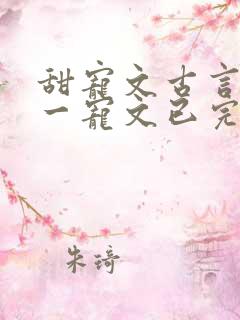 甜寵文古言
一寵文已完
朱琦